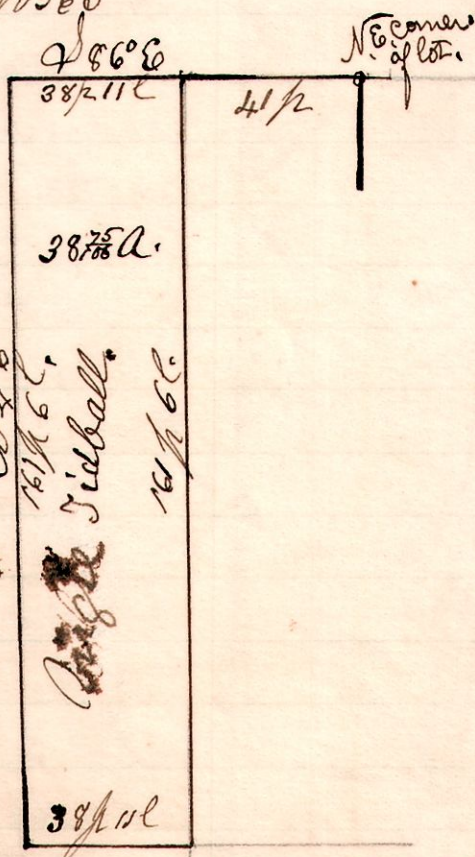 S 86° E
N.E. corner
of lot.
38p 11l
41p
38 75/100 A.
161p 6l.
Tidball.
161p 6l.
38p 11l